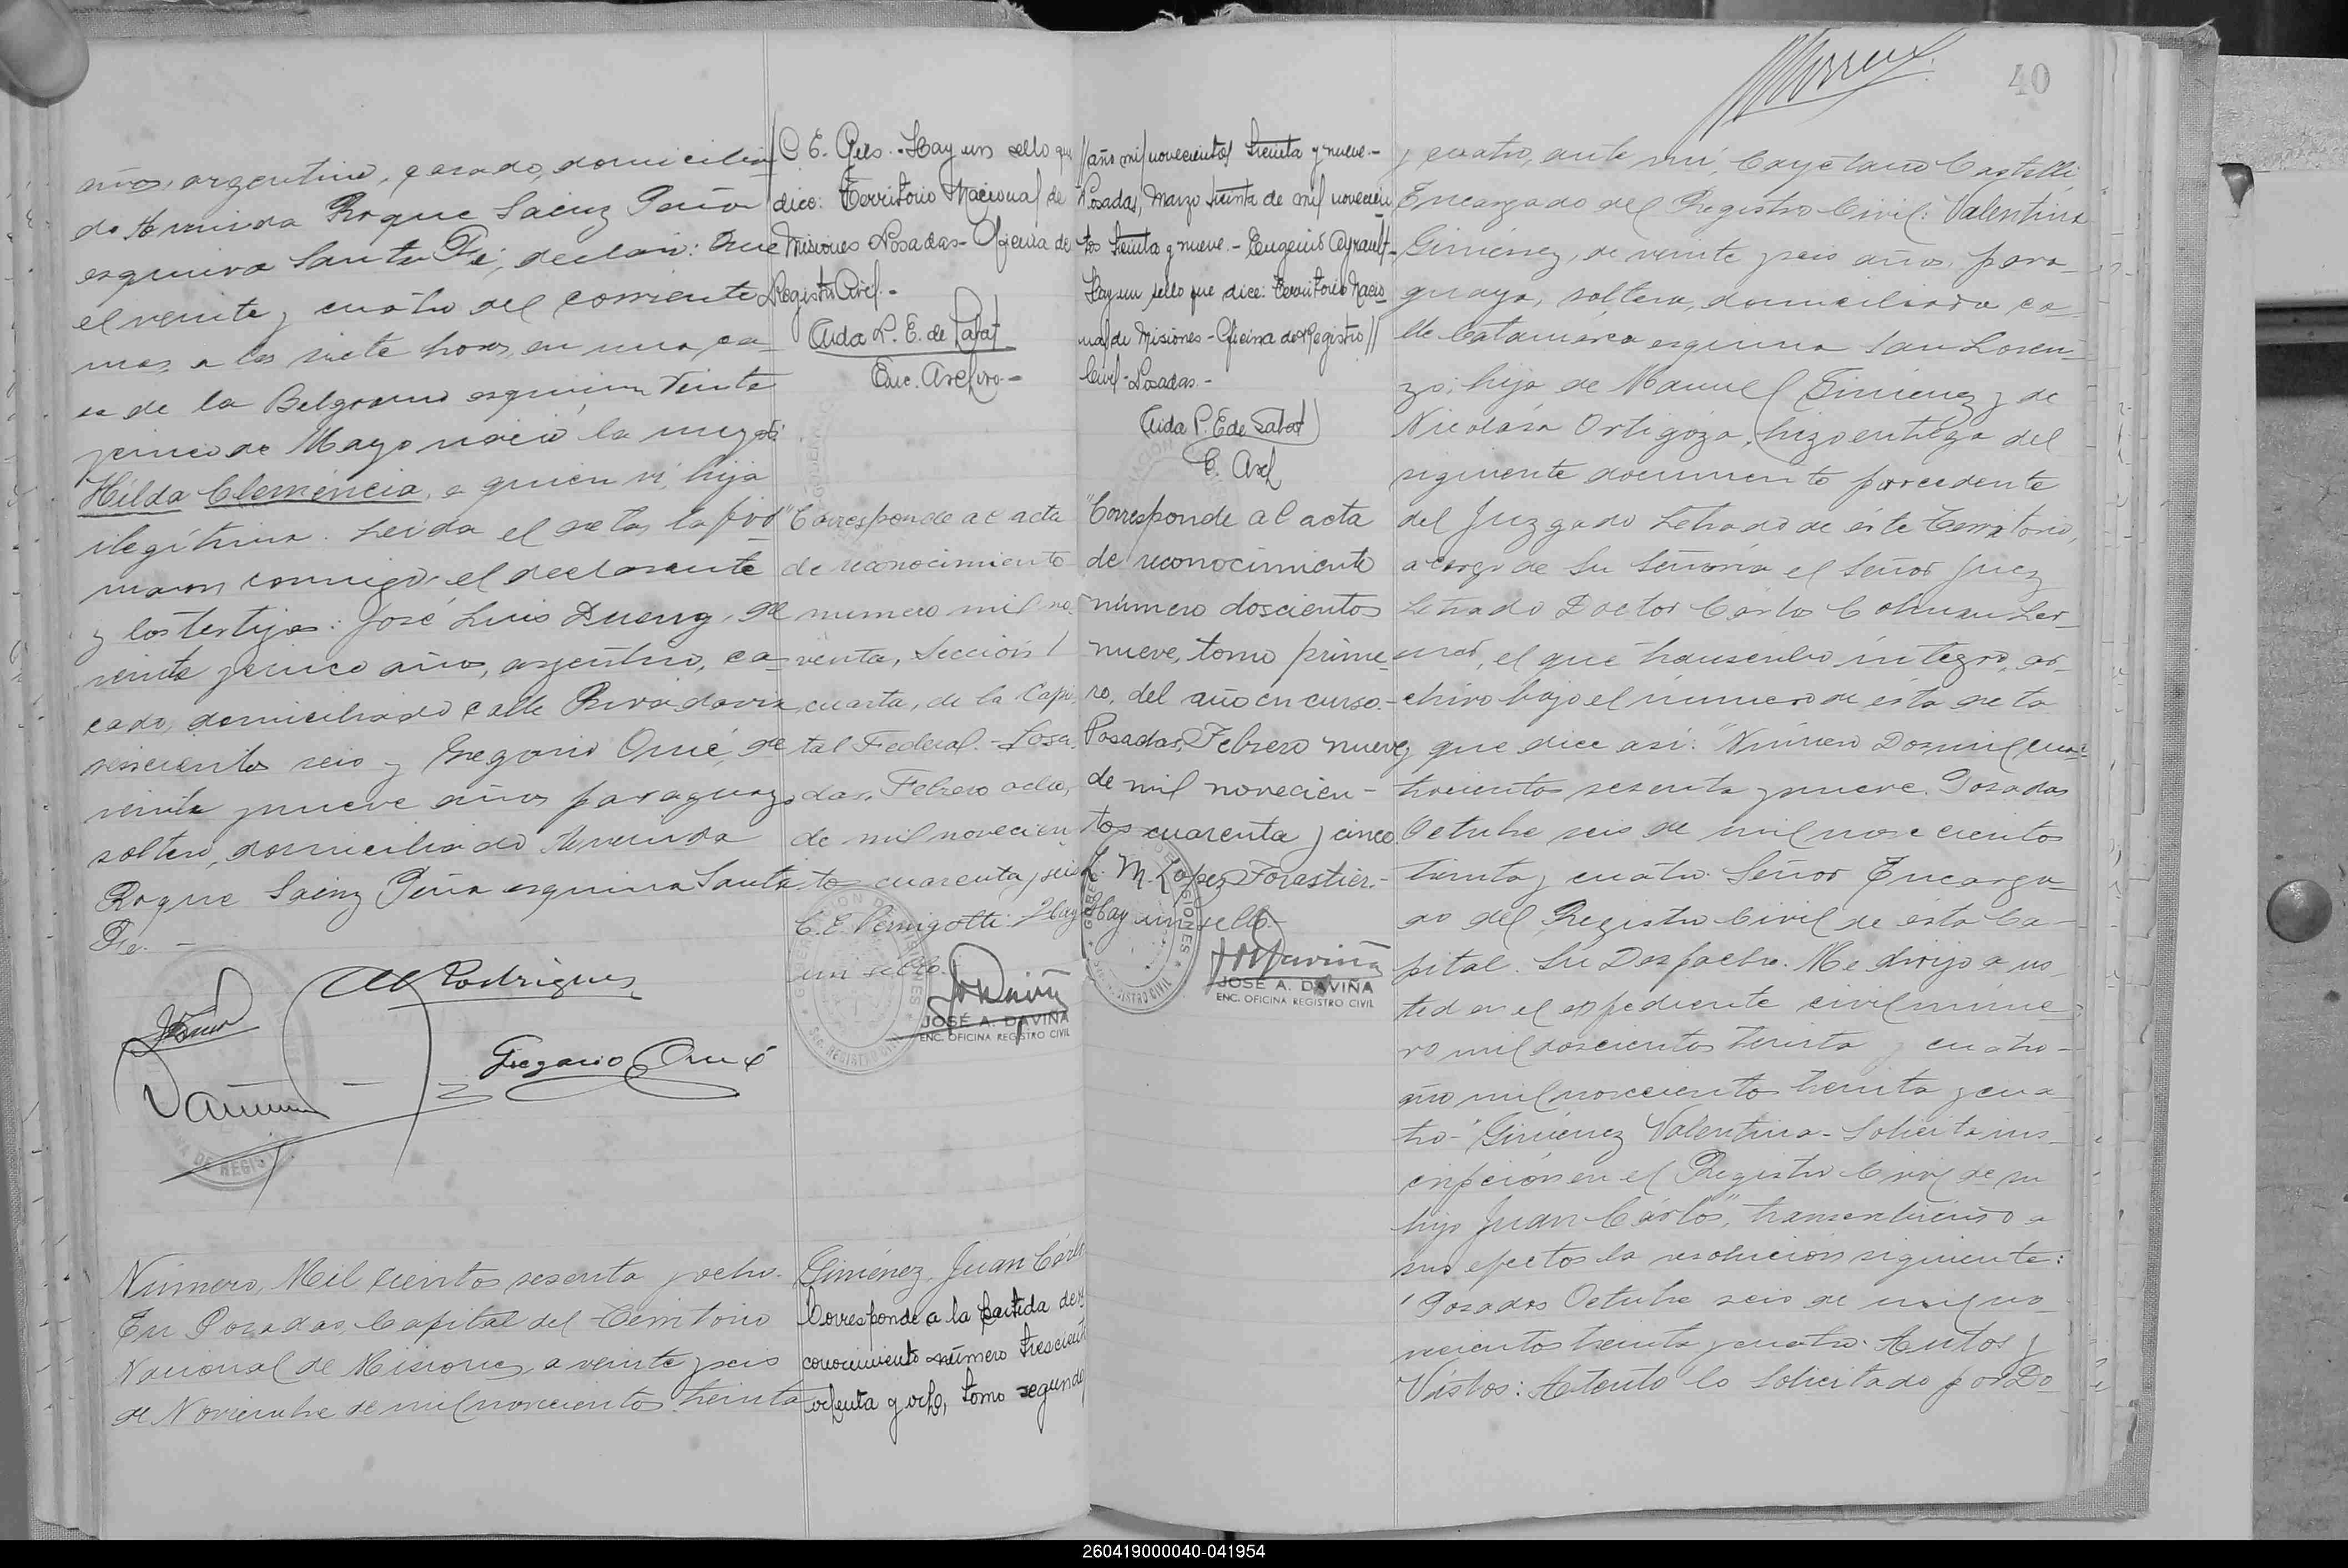 años, argentino, casado, domicilia-
do Avenida Roque Saenz Peña
esquina Santa Fé, declaró: Que
el veinte y cuatro del corriente
mes, a las siete horas, en una ca-
sa de la Belgrano esquina Veinte
y cinco de Mayo nació la mujer
Hilda Clemencia, a quien vi, hija
ilegítima. Leida el acta la fir-
maron conmigo el declarante
y los testigos: José Luis Dueny, de
veinte y cinco años, argentino, ca-
sado, domiciliado calle Rivadavia
seiscientos seis y Gregorio Orué, de
veinte y nueve años paraguayo
soltero, domiciliado Avenida
Roque Saénz Peña esquina Santa
Fé. -
Al Rodriguez
Gregorio Orué
Número, Mil cientos sesenta y ocho.
En Posadas, Capital del Territorio
Nacional de Misiones, a veinte y seis
de Noviembre de mil novecientos treinta
C. E. Hay un sello que
dice: Territorio Nacional de
Misiones Posadas - Oficina de
Registro Civil. -
Aida P. E. de Sabat
Enc. Archivo. -
"Corresponde al acta
de reconocimiento
número mil no-
venta, Sección
cuarta, de la Capi-
tal Federal. - Posa-
das, Febrero ocho,
de mil novecien-
tos cuarenta y seis
C. E. Pernigotti. Hay
un sello.
JOSÉ A. DAVIÑA
ENC. OFICINA REGISTRO CIVIL
Giménez, Juan Cárlos
Corresponde a la partida de re
conocimiento número trescientos
ochenta y ocho, tomo segundo
//año mil novecientos treinta y nueve. -
Posadas, Marzo treinta de mil novecien
tos treinta y nueve. - Eugenio Ayrault -
Hay un sello que dice: Territorio Nacio
nal de Misiones - Oficina de Registro //
Civil - Posadas. -
Aida P. E de Sabat
E. Arch
"Corresponde al acta
de reconocimiento
número doscientos
nueve, tomo prime-
ro, del año en curso. -
Posadas, Febrero nueve
de mil novecien-
tos cuarenta y cinco.
J. M. López Forastier. -
Hay un sello.
JOSE A. DAVIÑA
ENC. OFICINA REGISTRO CIVIL
40
y cuatro, ante mí, Cayetano Castelli
Encargado del Registro Civil: Valentina
Giménez, de veinte y seis años, para-
guaya, soltera, domiciliada ca-
lle Catamarca esquina San Loren-
zo; hija de Manuel Giménez y de
Nicolása Ortigóza, hizo entrega del
siguiente documento procedente
del Juzgado Letrado de éste Territorio,
a cargo de Su Señoría el Señor Juez
Letrado Doctor Cárlos Coleman Ler-
ner, el que transcribo íntegro, ar-
chivo bajo el número de ésta acta
y que dice así: "Número Dosmil cua-
trocientos sesenta y nueve. Posadas
Octubre seis de mil novecientos
treinta y cuatro. Señor Encarga-
do del Registro Civil de ésta Ca-
pital. Su Despacho. Me dirijo a us-
ted en el expediente civil núme-
ro mil doscientos treinta y cuatro -
año mil novecientos treinta y cua-
tro - "Giménez Valentina - Solicita ins-
cripción en el Registro Civil de su
hijo Juan Cárlos", transcribiendo a
sus efectos la resolución siguiente:
"Posadas Octubre seis de mil no-
vecientos treinta y cuatro. Autos y
Vistos: Atento lo solicitado por Do-
260419000040-041954